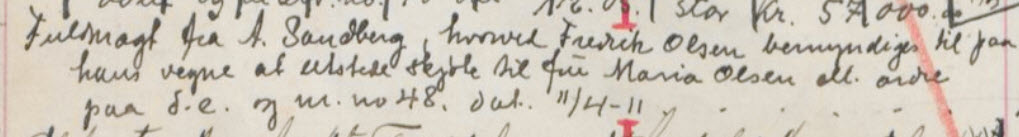 stor Kr. 57000.00
Fuldmagt fra A. Sandberg, hvorved Fredrik Olsen bemyndiges til paa
hans vegne at utstede skjøte til fru Maria Olsen ell. ordre
paa d.e. og nr. no 48. dat. 11/4-11